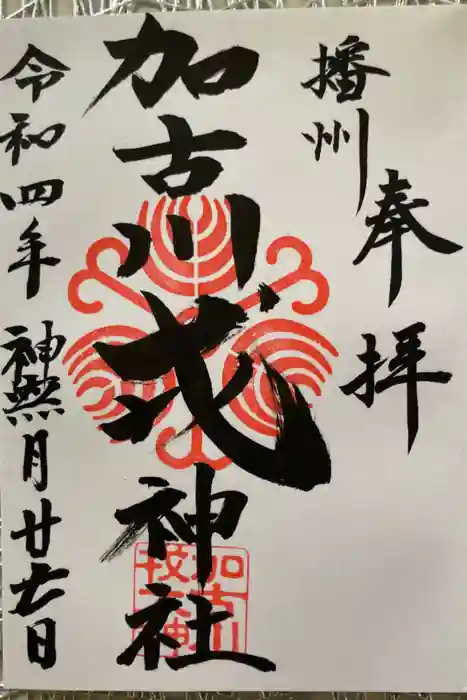 播州
奉拝
加古川戎神社
加古川
令和四年神無月廿日